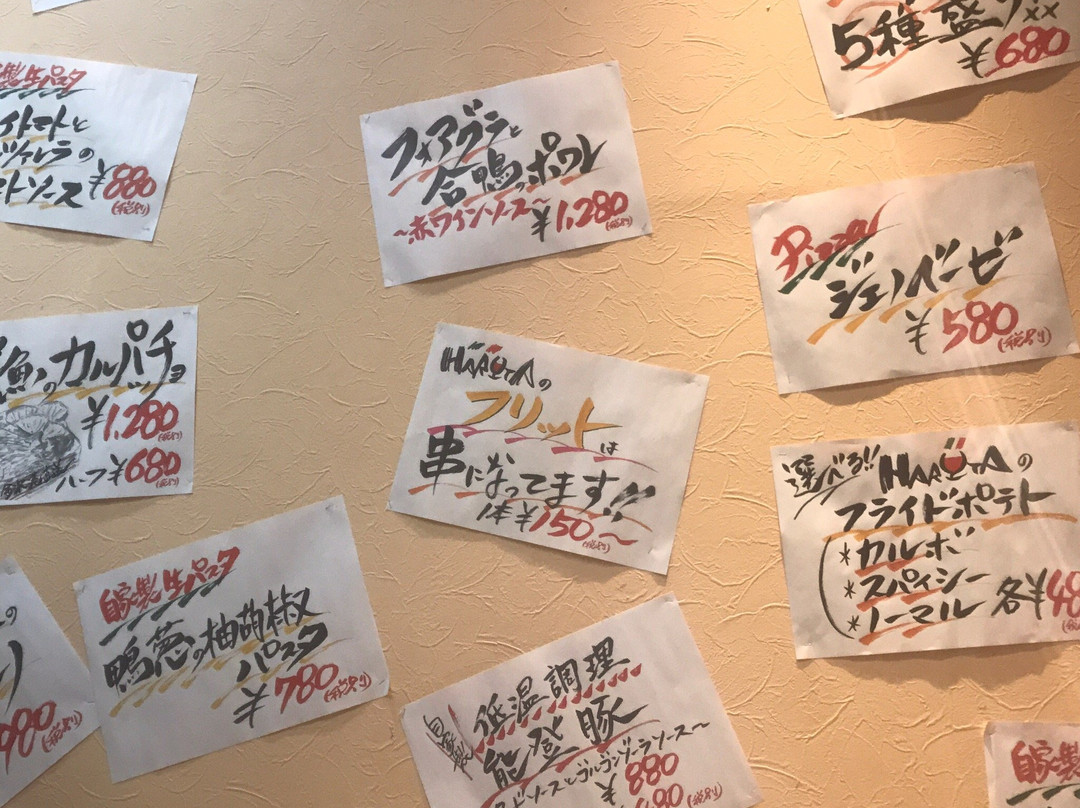 5種盛り
¥680
製生パスタ
イトマトと
ツァレラの
トソース ¥880
(税別)
フォアグラと
合鴨のポワレ
~赤ワインソース~ ¥1,280
(税別)
Pizza
ジェノベーゼ
¥580
(税別)
魚のカルパッチョ
¥1,280
(税別)
ハーフ¥680
(税別)
HARUTAの
フリットは
串になってます!!
1本¥150~
(税別)
選べる!! HARUTAの
フライドポテト
*カルボ
*スパイシー
*ノーマル 各¥48
自家製生パスタ
鴨葱の柚胡椒
パスタ
¥780
(税別)
の
980
(税別)
自家製
低温調理
能登豚
ードソースとゴルゴンゾーラソース~
¥880
680
(税別)
自家製